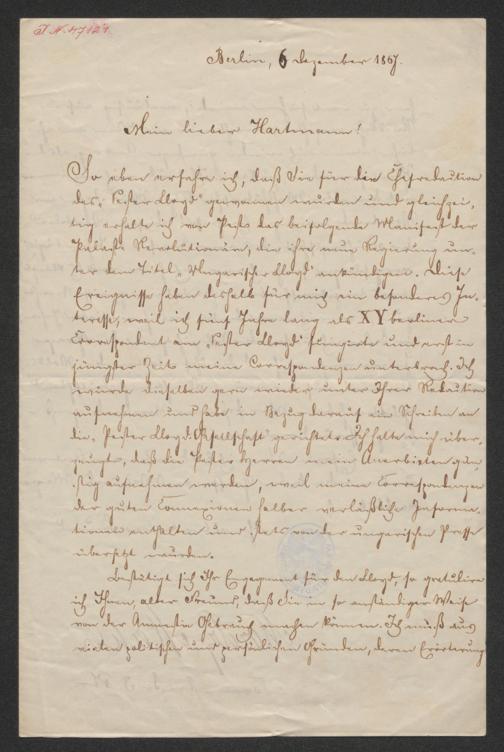 I.N. 47129
Berlin, 6 Dezember 1867.
Mein lieber Hartmann!
So eben erfahre ich, daß Sie für die Chefredaction
des „Pester Lloyd“ gewonnen wurden und gleichzei-
tig erhalte ich von Pest das beifolgende Manifest der
Palast-Revolutionäre, die ihre neue Regierung un-
ter dem Titel „Ungarischer Lloyd“ ankündigen. Diese
Ereignisse haben deshalb für mich ein besonderes In-
teresse, weil ich fünf Jahre lang als XY berliner
Correspondent am „Pester Lloyd“ fungirte und erst in
jüngster Zeit meine Correspondenzen unterbrach. Ich
wurde dieselben gern wieder unter Ihrer Redaction
aufnehmen und habe in Bezug darauf ein Schreiben an
die „Pester Lloyd-Gesellschaft“ gerichtet. Ich halte mich über-
zeugt, daß die Pester Herren mein Anerbieten gün-
stig aufnehmen werden, weil meine Correspondenzen
der guten Connexionen halber verläßliche Informa-
tionen enthalten und stets von der ungarischen Presse
übersetzt wurden.
Bestätigt sich Ihr Engagement für den Lloyd, so gratulire
ich Ihnen, alter Freund, daß Sie in so anständiger Weise
von der Amnestie Gebrauch machen können. Ich muß aus
vielen politischen und persönlichen Gründen, deren Erörterung